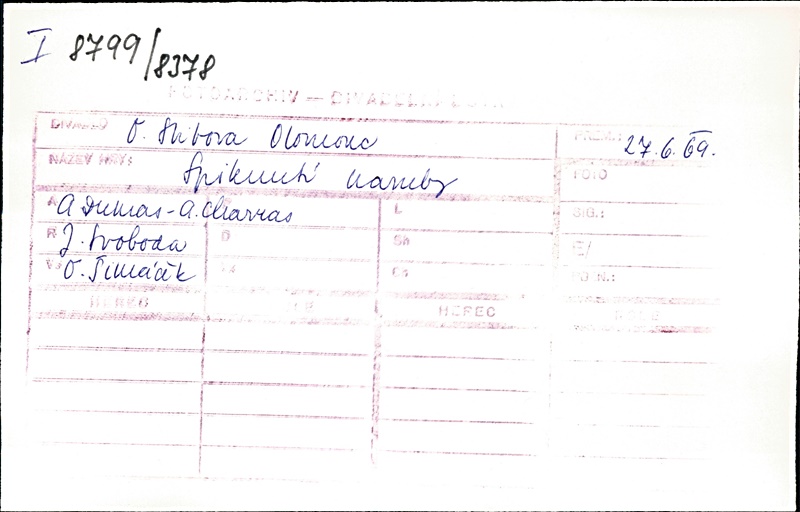 I 8799/8378
FOTOARCHIV — DIVADELNÍ
DIVADLO O. Stibora Olomouc PREM.: 27. 6. 69.
NÁZEV HRY: Spiknutí naruby FOTO
A A Dumas - A. Charras L SIG.:
R J. Svoboda D Sh
V O. Šimáček POZN.:
HEREC ROLE HEREC ROLE